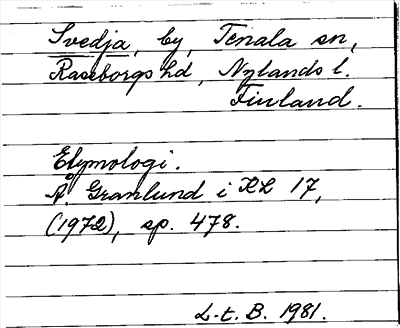 Svedja, by, Tenala sn,
Raseborgs hd, Nylands l.
Finland.
Etymologi.
Å. Granlund i KL 17,
(1972), sp. 478.
L-t. B. 1981.